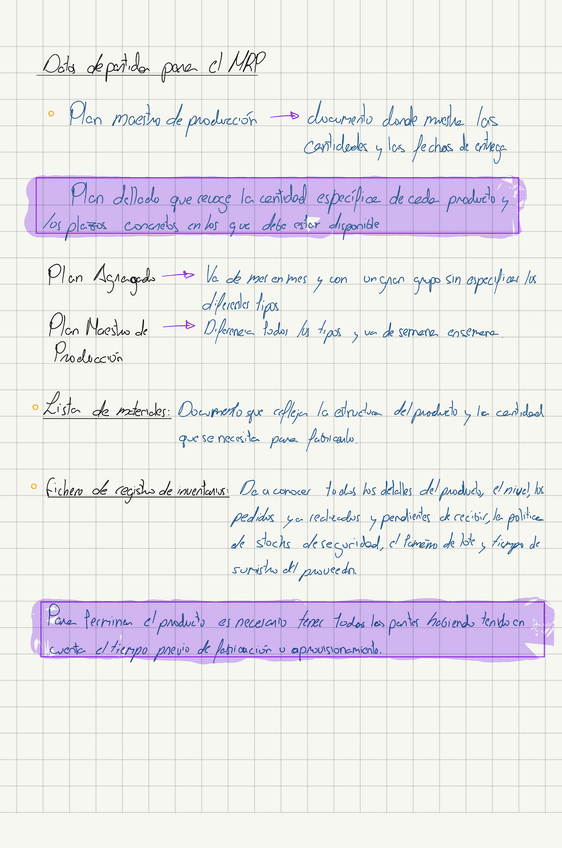 Datos de partida para el MRP
Plan maestro de producción → documento donde muestra las
cantidades y las fechas de entrega
Plan detallado que recoge la cantidad específica de cada producto y
los plazos concretos en los que debe estar disponible
Plan Agregado → Va de mes en mes y con un gran grupo sin especificar los
diferentes tipos
Plan Maestro de → Diferencia todos los tipos y va de semana en semana.
Producción
Lista de materiales: Documento que refleja la estructura del producto y la cantidad
que se necesita para fabricarlo.
Fichero de registro de inventarios: Da a conocer todos los detalles del producto, el nivel, los
pedidos ya realizados y pendientes de recibir, la política
de stocks de seguridad, el tamaño de lote y tiempo de
suministro del proveedor.
Para terminar el producto es necesario tener todas las partes habiendo tenido en
cuenta el tiempo previo de fabricación u aprovisionamiento.